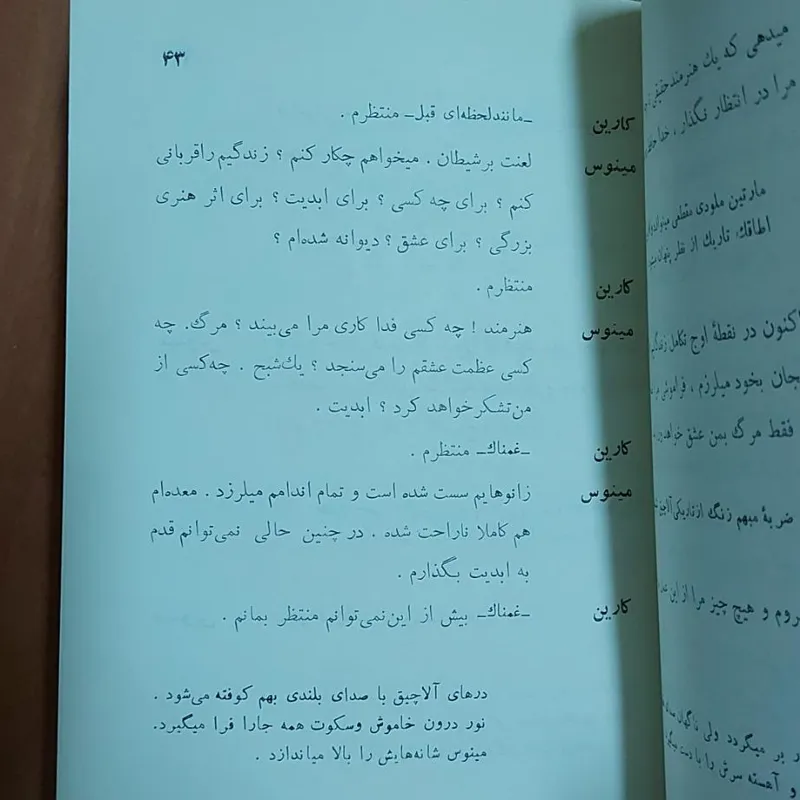 ۴۳
کارین ـمانندلحظه‌ای قبل‌ـ منتظرم .
مینوس لعنت برشیطان . میخواهم چکار کنم ؟ زندگیم راقربانی
کنم ؟ برای چه کسی ؟ برای ابدیت ؟ برای اثر هنری
بزرگی ؟ برای عشق ؟ دیوانه شده‌ام ؟
کارین منتظرم .
مینوس هنرمند ! چه کسی فدا کاری مرا می‌بیند ؟ مرگ. چه
کسی عظمت عشقم را می‌سنجد ؟ یك‌شبح . چه‌کسی از
من‌تشکرخواهد کرد ؟ ابدیت .
کارین ـغمناك‌ـ منتظرم .
مینوس زانوهایم سست شده است و تمام اندامم میلرزد . معده‌ام
هم کاملا ناراحت شده . در چنین حالی نمی‌توانم قدم
به ابدیت بگذارم .
کارین ـغمناك‌ـ بیش از این‌نمی‌توانم منتظر بمانم .
درهای آلاچیق با صدای بلندی بهم کوفته می‌شود .
نور درون خاموش وسکوت همه جارا فرا میگیرد.
مینوس شانه‌هایش را بالا میاندازد .
میدهی که یك هنرمند حقیقی
مرا در انتظار نگذار ،
مارتین ملودی مقطعی
اطاقك تاریك از نظر پنهان
اکنون در نقطهٔ اوج تکامل
جان بخود میلرزم ،
فقط مرگ بمن عشق
ضربهٔ مبهم زنگ ازتاریکی
روم و هیچ چیز مرا از این
بر میگردد ولی ناگهان
و آهسته سرش را با دست